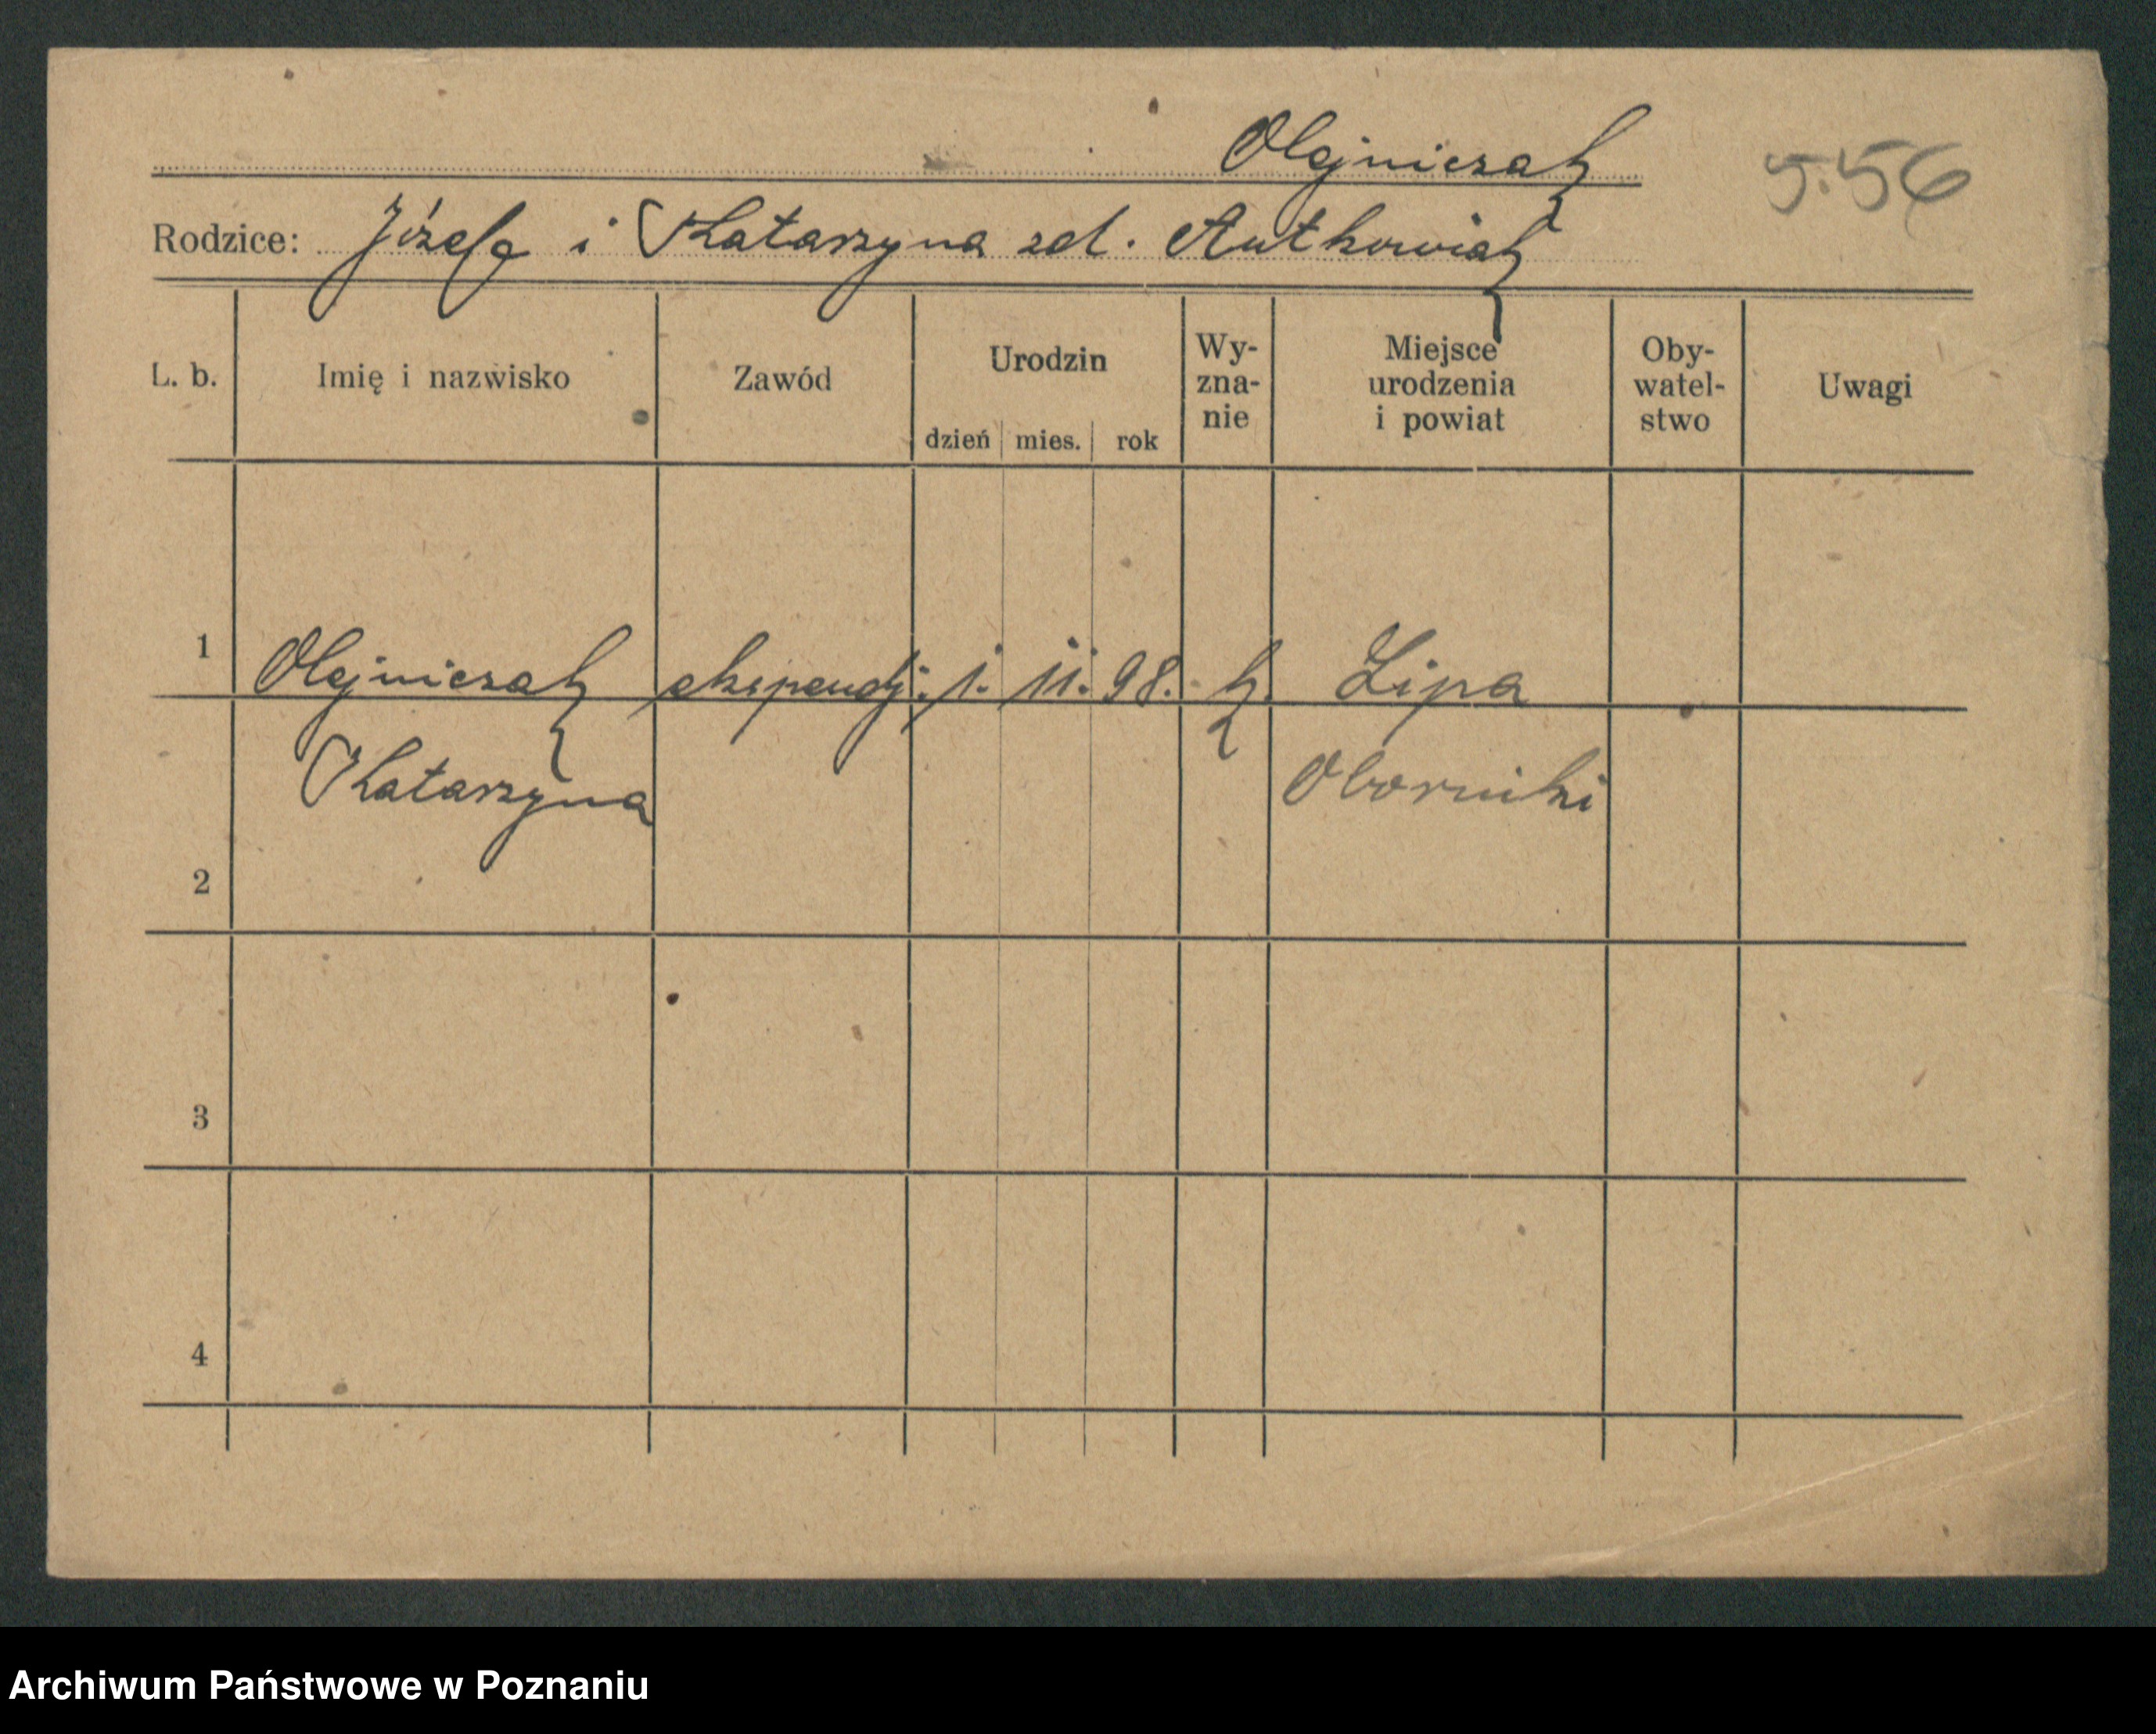 Olejniczak
5.56
Rodzice: Józefa i Katarzyna zd. Antkowiak
L. b. Imię i nazwisko Zawód Urodzin dzień mies. rok Wy-zna-nie Miejsce urodzenia i powiat Oby-watel-stwo Uwagi
1 Olejniczak ekspendj. 1. 11. 98. k. Lipa
Katarzyna Oborniki
2
3
4
Archiwum Państwowe w Poznaniu